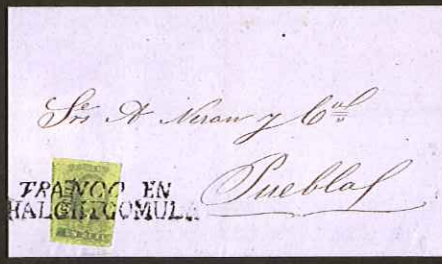 Srs A Neron y Cal
Puebla
FRANCO EN
CHALCHICOMULA